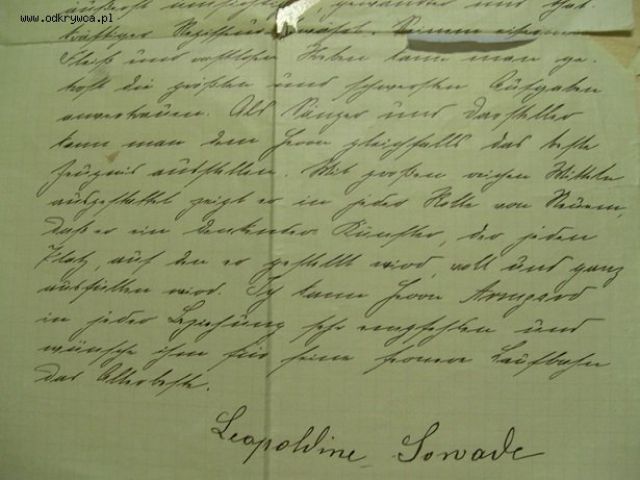 www.odkrywca.pl
äußerst umsichtiger, gewandter und that-
kräftiger Regisseur
Fleiß und rastlosen Streben kann man ge-
trost die größten und schwersten Aufgaben
anvertrauen. Als Sänger und Darsteller
kann man dem Herrn gleichfalls das beste
Zeugnis ausstellen. Mit großen reichen Mitteln
ausgestattet zeigt er in jeder Rolle von Neuem,
daß er ein denkender Künstler, der jeden
Platz, auf den er gestellt wird, voll und ganz
ausfüllen wird. Ich kann Herrn
in jeder Beziehung sehr empfehlen und
wünsche ihm für seine fernere Laufbahn
das Allerbeste.
Leopoldine Sowade